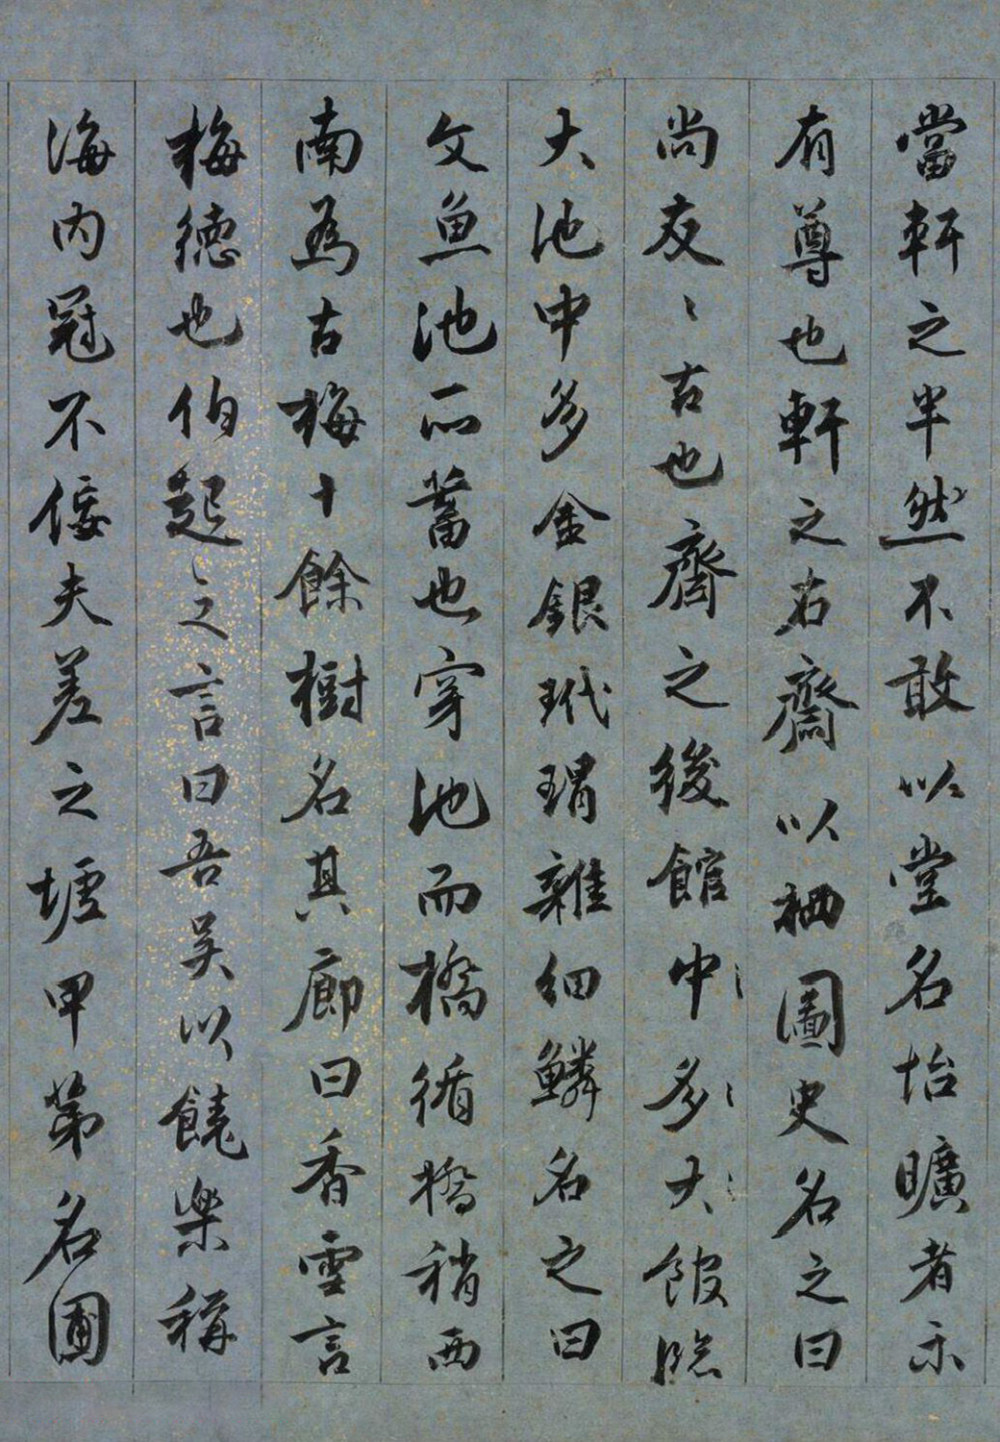 當軒之半然不敢以堂名怡曠者示
有尊也軒之右齋以栖圖史名之曰
尚友〻古也齋之後館中多大館臨
大池中多金銀玳瑁雜細鱗名之曰
文魚池所蓄也穿池而橋循橋稍西
南為古梅十餘樹名其廊曰香雪言
梅德也伯起之言曰吾吳以饒樂稱
海內冠不佞夫差之墟甲第名圃